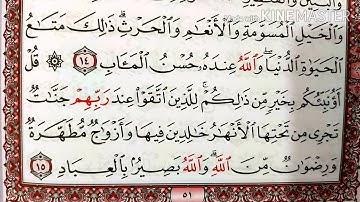 KINEMASTER
وَٱلْخَيْلِ ٱلْمُسَوَّمَةِ وَٱلْأَنْعَٰمِ وَٱلْحَرْثِ ۗ ذَٰلِكَ مَتَٰعُ
ٱلْحَيَوٰةِ ٱلدُّنْيَا ۖ وَٱللَّهُ عِندَهُۥ حُسْنُ ٱلْمَـَٔابِ ١٤ ۞ قُلْ
أَؤُنَبِّئُكُم بِخَيْرٍ مِّن ذَٰلِكُمْ ۚ لِلَّذِينَ ٱتَّقَوْا۟ عِندَ رَبِّهِمْ جَنَّٰتٌ
تَجْرِى مِن تَحْتِهَا ٱلْأَنْهَٰرُ خَٰلِدِينَ فِيهَا وَأَزْوَٰجٌ مُّطَهَّرَةٌ
وَرِضْوَٰنٌ مِّنَ ٱللَّهِ ۗ وَٱللَّهُ بَصِيرٌۢ بِٱلْعِبَادِ ١٥
٥١